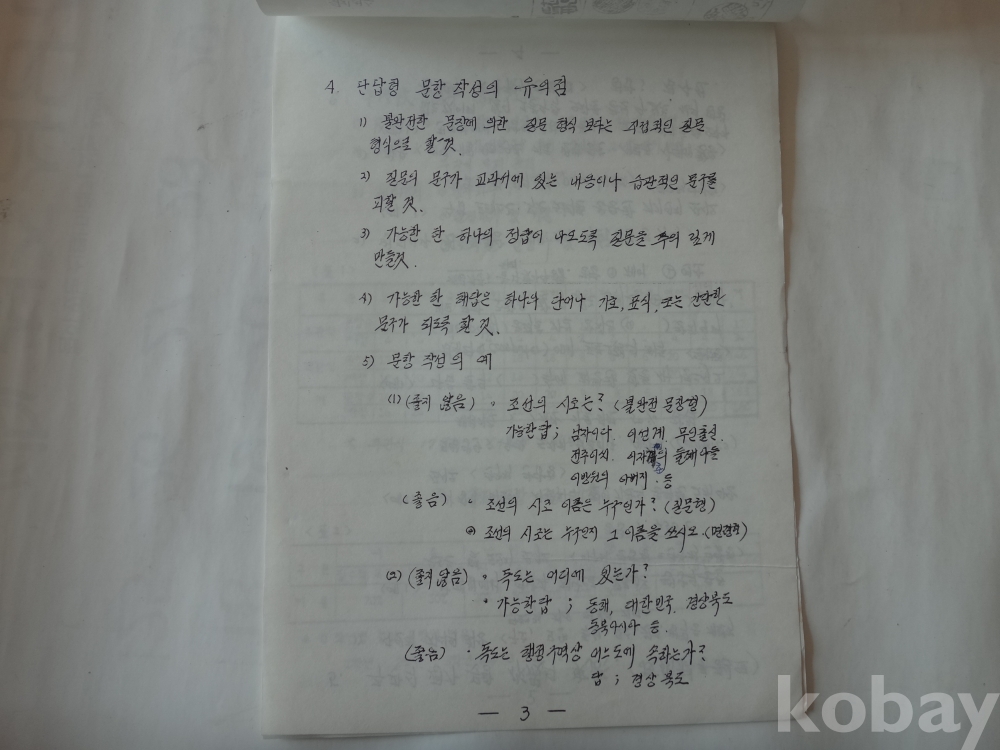 4. 단답형 문항 작성의 유의점
1) 불완전한 문장에 의한 질문 형식 보다는 직접적인 질문
형식으로 할 것.
2) 질문의 문구가 교과서에 있는 내용이나 습관적인 문구를
피할 것.
3) 가능한 한 하나의 정답이 나오도록 질문을 주의 깊게
만들것.
4) 가능한 한 해답은 하나의 단어나 기호, 표식, 또는 간단한
문구가 되도록 할 것.
5) 문항 작성의 예
(1) (좋지 않음) 。 조선의 시조는? (불완전 문장형)
가능한 답 ; 남자이다. 이성계. 무인출신.
전주이씨. 이자 의 둘째아들
이방원의 아버지 . 등
(좋음) 。 조선의 시조 이름은 누구인가? (질문형)
조선의 시조는 누구인지 그 이름을 쓰시오. (명령형)
(2) (좋지 않음) 。 독도는 어디에 있는가?
• 가능한 답 ; 동해, 대한민국. 경상북도
동북아시아 등.
(좋음) · 독도는 행정구역상 어느도에 속하는가?
답 ; 경상북도
— 3 —
kobay